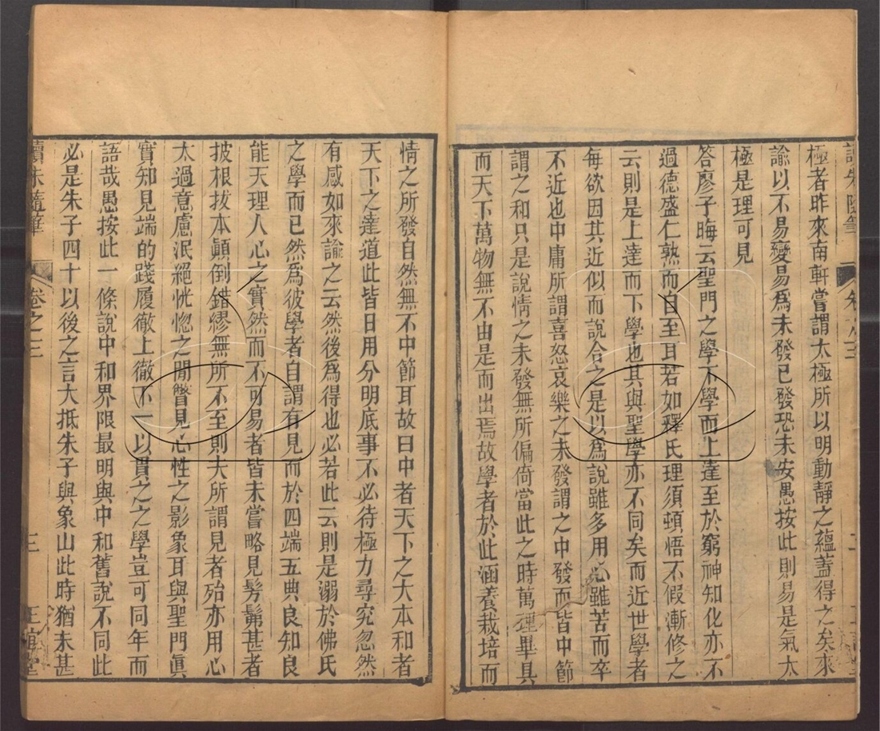 極者昨來南軒嘗謂太極所以明動靜之蘊蓋得之矣來
諭以不易變易爲未發已發恐未安愚按此則易是氣太
極是理可見
答廖子晦云聖門之學下學而上達至於窮神知化亦不
過德盛仁熟而自至耳若如釋氏理須頓悟不假漸修之
云則是上達而下學也其與聖學亦不同矣而近世學者
每欲因其近似而說合之是以爲說雖多用心雖苦而卒
不近也中庸所謂喜怒哀樂之未發謂之中發而皆中節
謂之和只是說情之未發無所偏倚當此之時萬理畢具
而天下萬物無不由是而出焉故學者於此涵養栽培而
情之所發自然無不中節耳故曰中者天下之大本和者
天下之達道此皆日用分明底事不必待極力尋究忽然
有感如來諭之云然後爲得也必若此云則是溺於佛氏
之學而已然爲彼學者自謂有見而於四端五典良知良
能天理人心之實然而不可易者皆未嘗略見髣髴甚者
披根拔本顚倒錯繆無所不至則夫所謂見者殆亦用心
太過意慮泯絕恍惚之間瞥見心性之影象耳與聖門眞
實知見端的踐履徹上徹下一以貫之之學豈可同年而
語哉愚按此一條說中和界限最明與中和舊說不同此
必是朱子四十以後之言大抵朱子與象山此時猶未甚
讀朱隨筆 卷之三 三 正誼堂